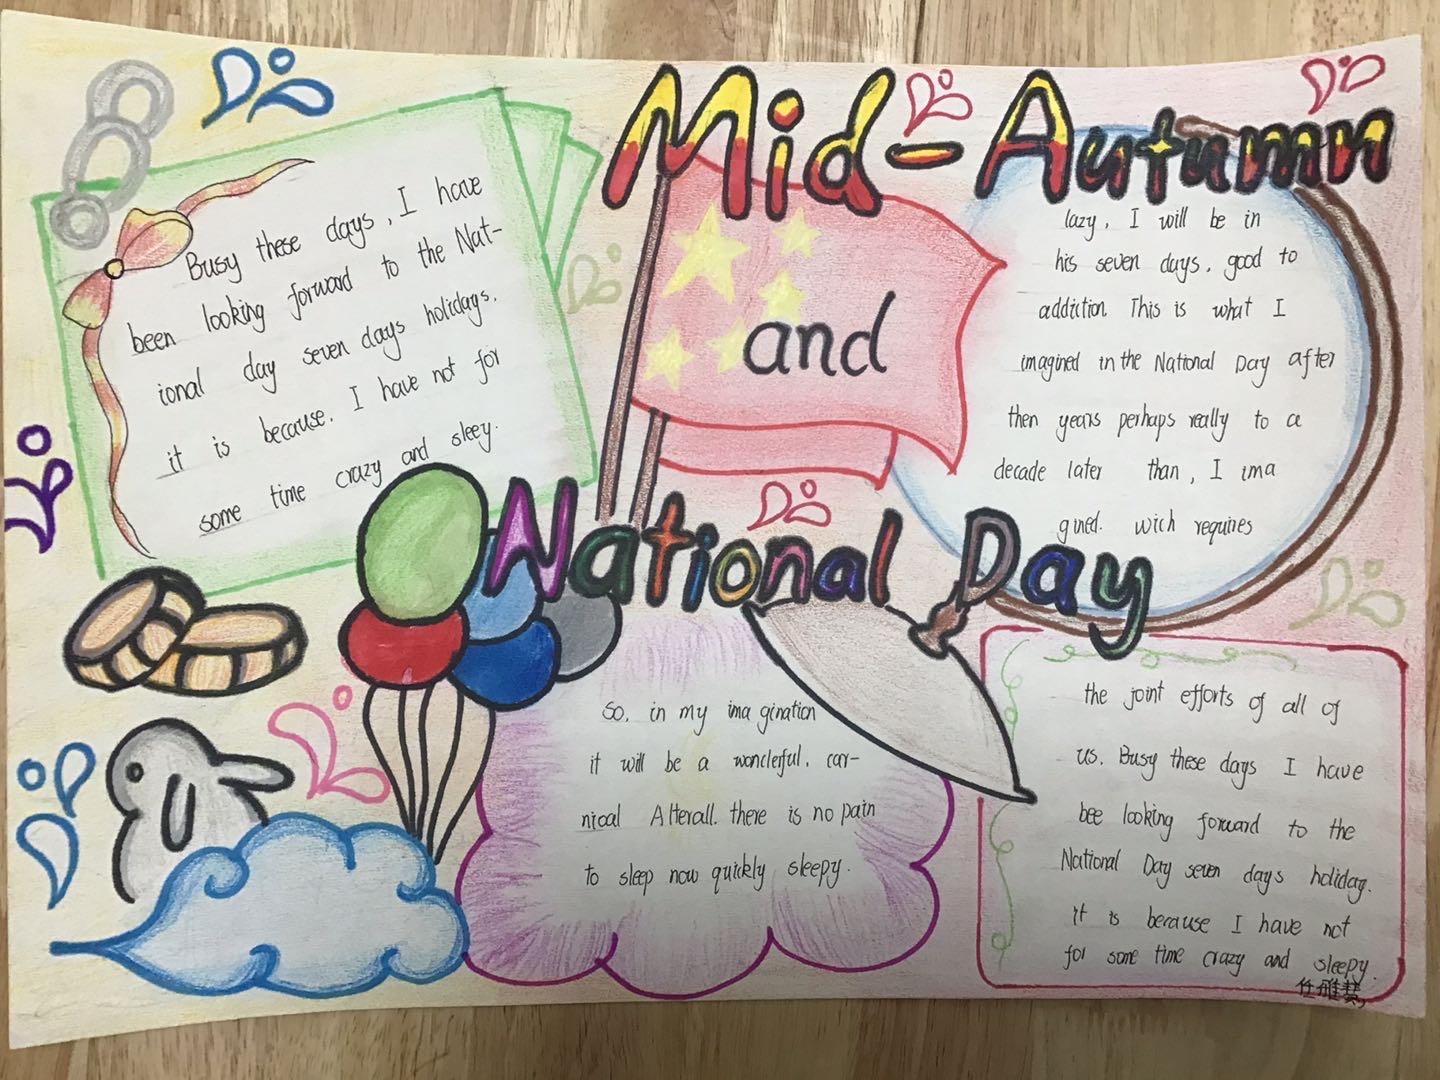 Mid-Autumn
and
National Day
Busy these days, I have
been looking forward to the Nat-
ional day seven days holidays.
it is because. I have not for
some time crazy and sleey.
lazy, I will be in
his seven days, good to
addiction. This is what I
imagined in the National Day after
then years perhaps really to a
decade later than, I ima
gined. wich requires
So, in my ima gination
it will be a wonclerful, car-
nical Alterall. there is no pain
to sleep now quickly sleepy.
the joint efforts of all of
us. Busy these days I have
bee looking forward to the
National Day seven days holiday.
it is because I have not
for some time crazy and sleepy.